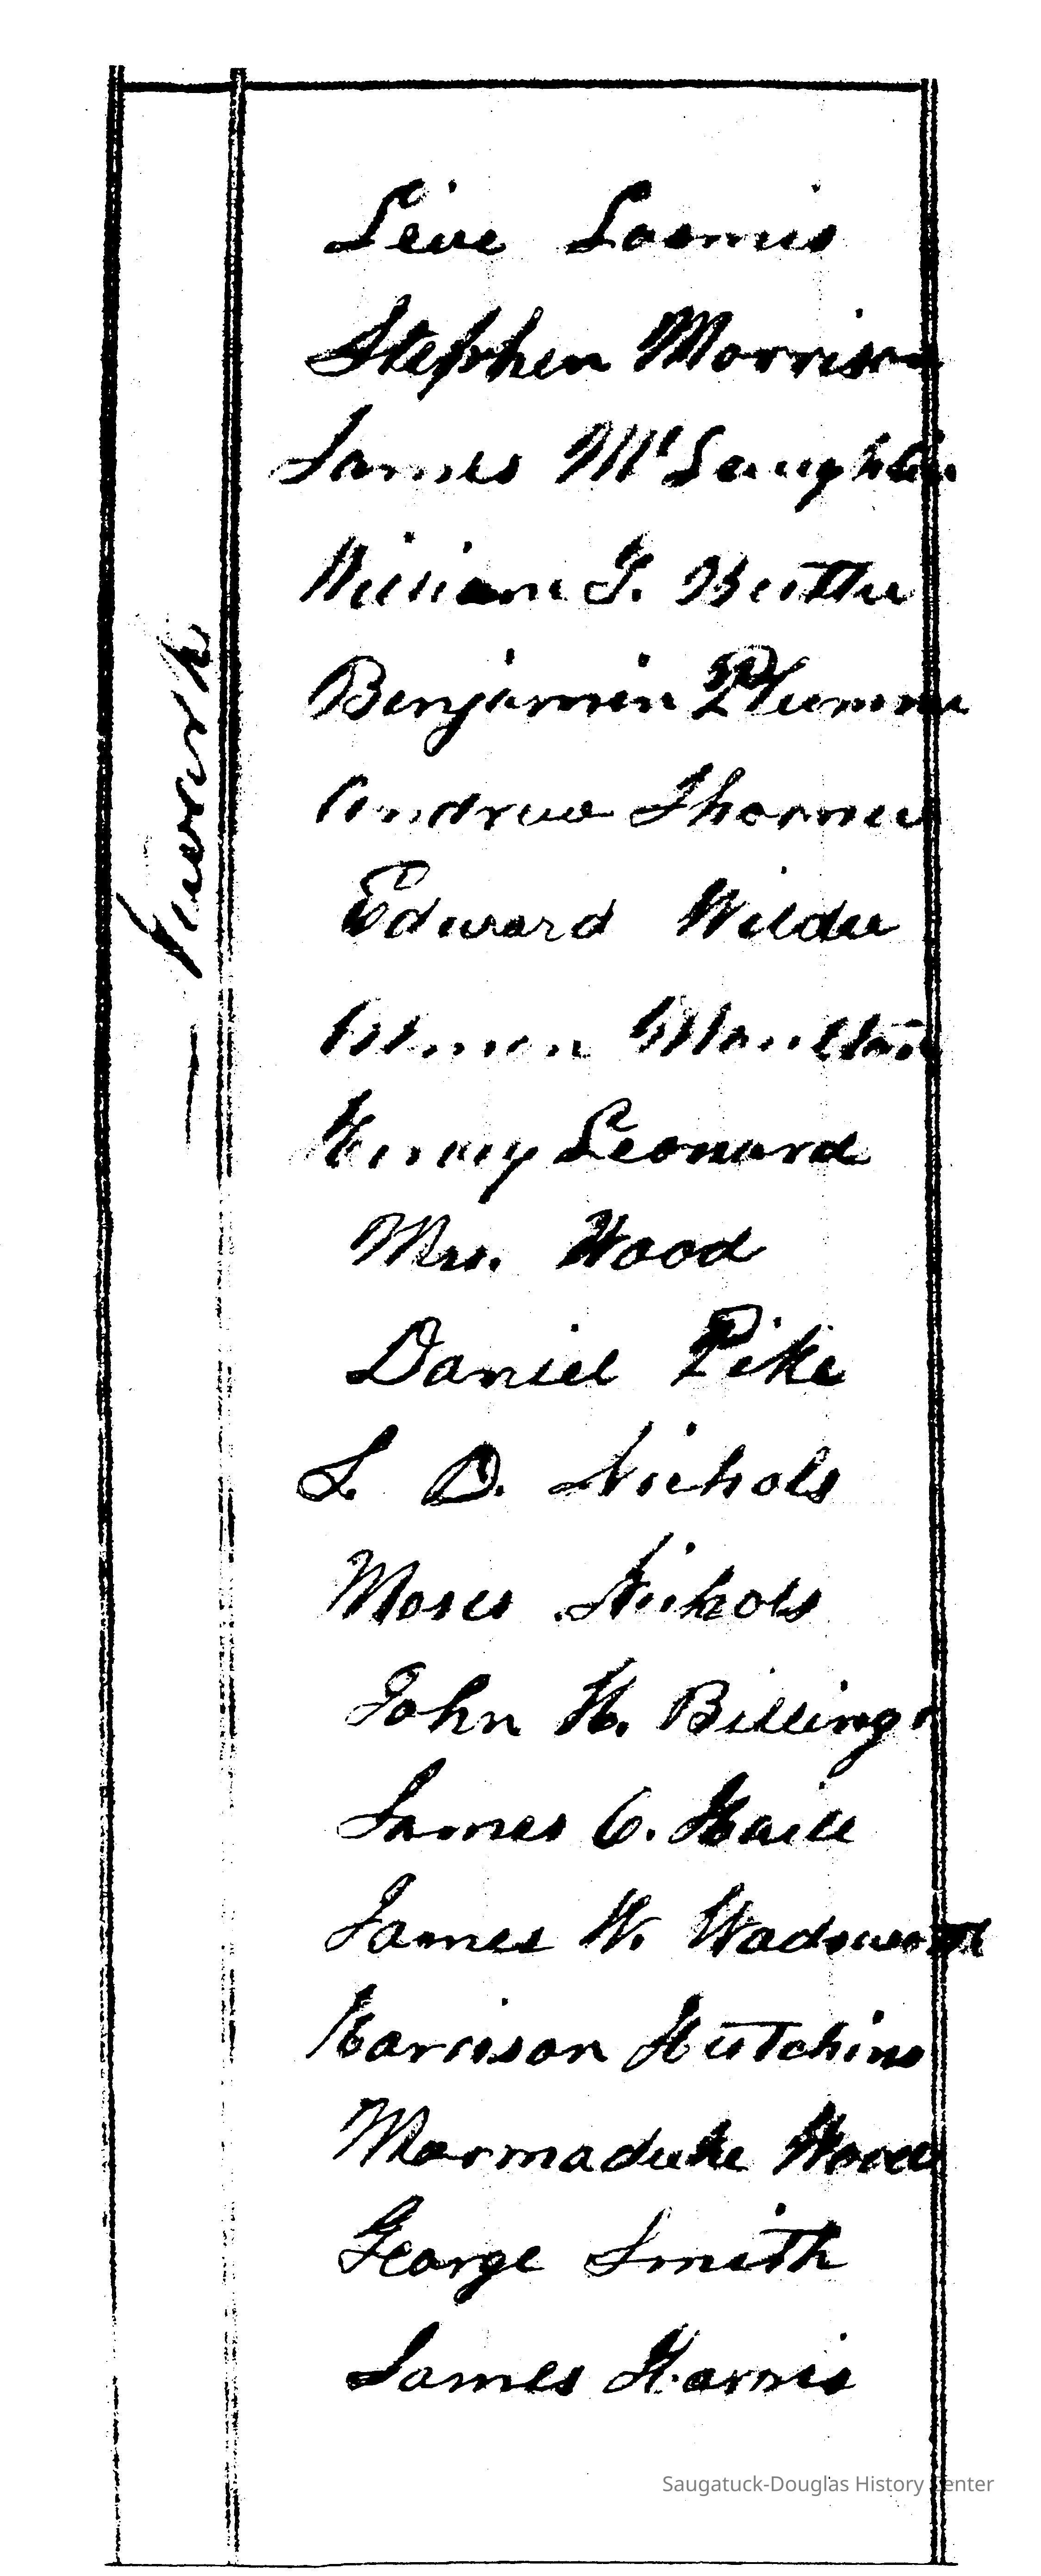 Newark
Levi Loomis
Stephen Morrison
James McLaughlin
William G. Butler
Benjamin Plummer
Andrew Thomas
Edward Wilder
Almon Moulton
Henry Leonard
Mrs. Wood
Daniel Pike
S. D. Nichols
Moses Nichols
John H. Billings
James C. Haile
James W. Wadsworth
Harrison Hutchins
Marmaduke Wood
George Smith
James Harris
Saugatuck-Douglas History Center